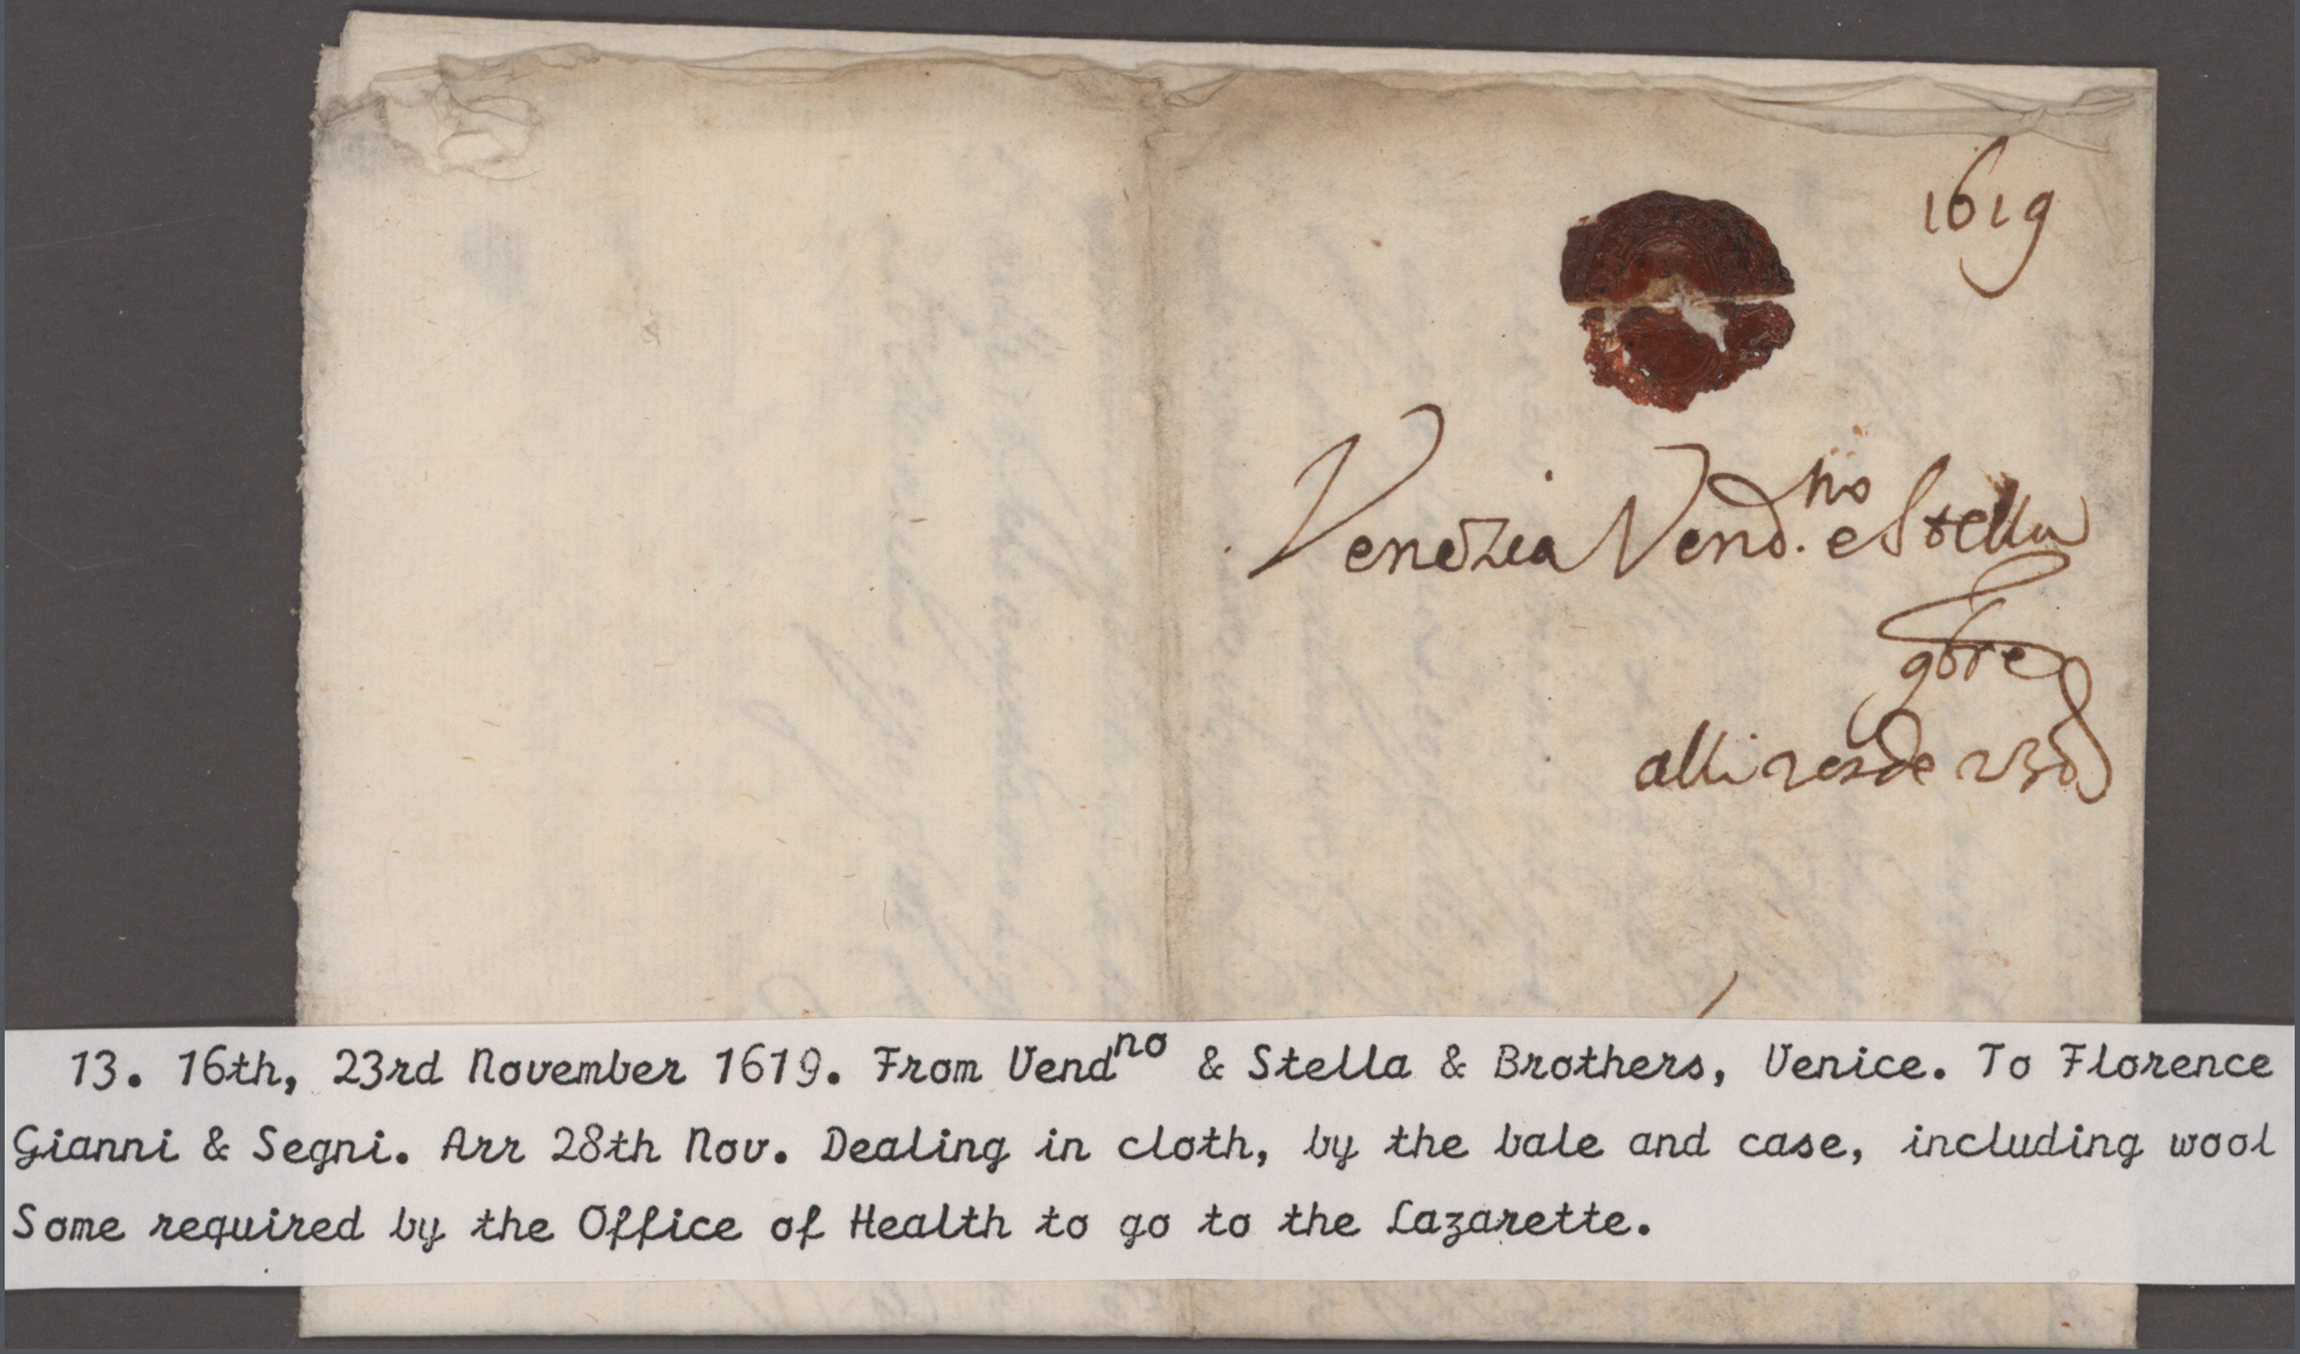 1619
Venezia Vend.no e Stella
alli
13. 16th, 23rd November 1619. From Vendno & Stella & Brothers, Venice. To Florence
Gianni & Segni. Arr 28th Nov. Dealing in cloth, by the bale and case, including wool
Some required by the Office of Health to go to the Lazarette.